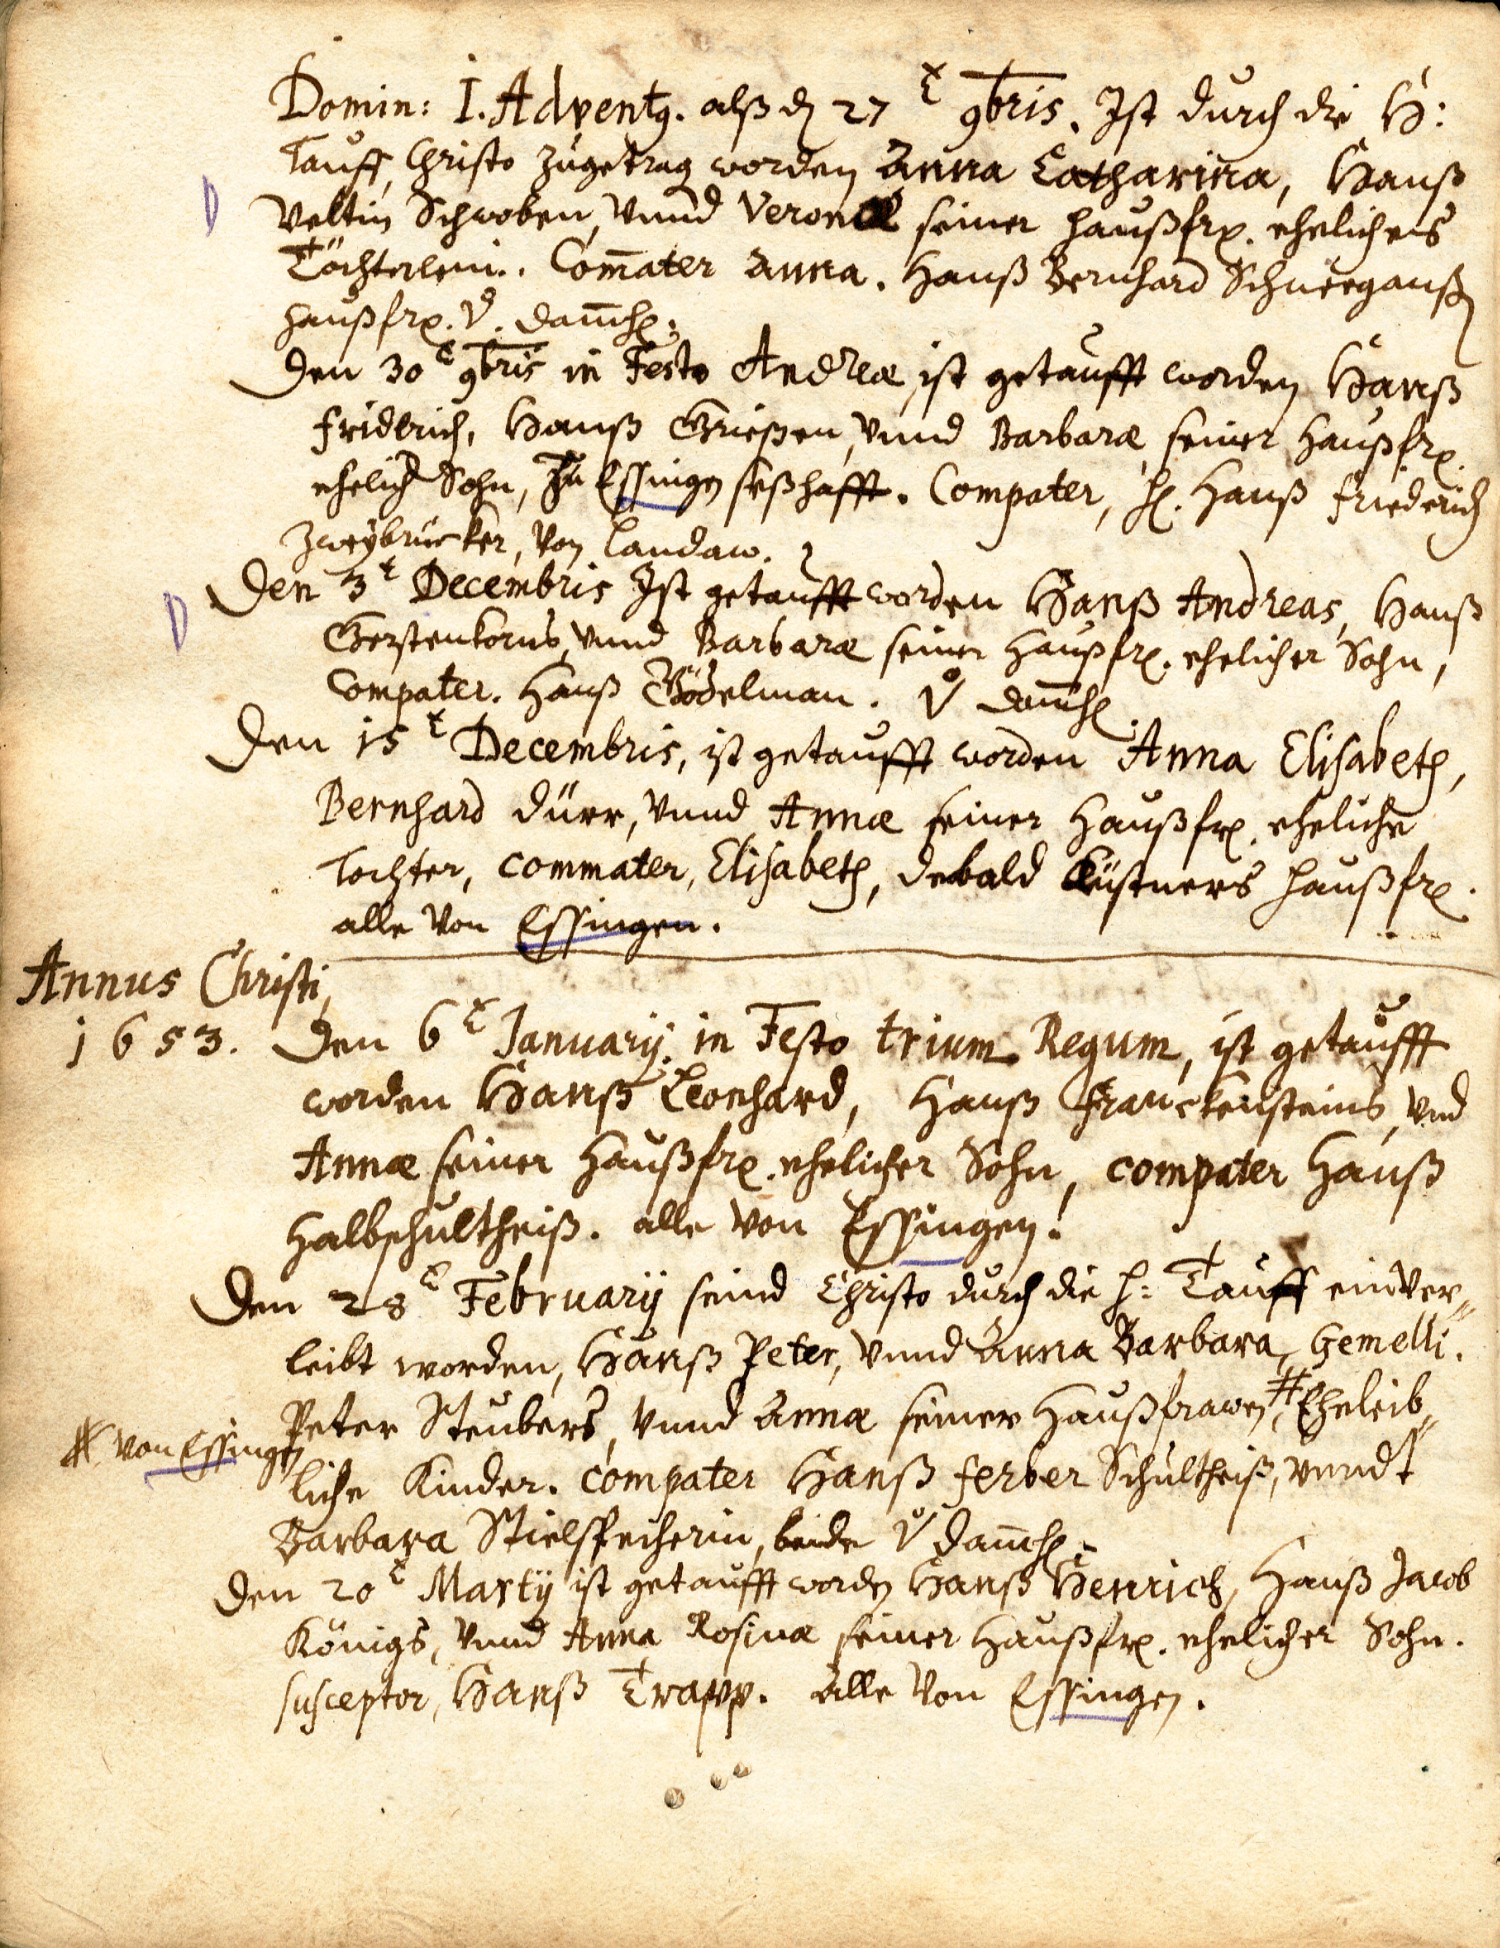 Domin: I. Advent9. alß dẽ 27 t 9bris. Ist durch die H:
Tauff, Christo zugetrag worden Anna Catharina, Hanß
Veltin Schwoben, vnnd Veronæ seiner haußfr. ehelichens
Töchterlein. Com̄ater Anna. Hanß Bernhard Schneeganß
haußfr. V. dam̄h:
Den 30 t 9bris in Festo Andreæ, ist getaufft worden Hanß
Fridrich, Hanß Grießen, vnnd Barbaræ seiner Haußfr.
ehelich Sohn, Zu Essingen seßhafft. Compater, H. Hanß Friederich
Zweybrücker, von Landaw.
Den 3 t Decembris Ist getaufft worden Hanß Andreas, Hanß
Gerstenkorns, vnnd Barbaræ seiner Haußfr. ehelicher Sohn,
Compater. Hanß Bödelman. V dam̄h.
Den 15 t Decembris, ist getaufft worden Anna Elisabeth,
Bernhard dürr, vnnd Annæ seiner Haußfr. eheliche
Tochter, Commater, Elisabeth, debald Küstners haußfr.
alle von Essingen.
Annus Christi,
1653. Den 6 t Januarij. in Festo trium Regum, ist getaufft
worden Hanß Leonhard, Hanß Franckensteins, vnd
Annæ seiner Haußfr. ehelicher Sohn, compater Hanß
Halbschultheiß. alle von Essingen.
Den 28 t Februarij seind Christo durch die H: Tauff einver-
leibt worden, Hanß Peter, vnnd Anna Barbara, Gemelli.
Peter Steubers, vnnd Annæ seiner Haußfrawen # Eheleib-
# von Essingen
liche Kinder. Compater Hanß Ferber Schultheiß, vnndt
Barbara Stielspecherin, beide V dam̄h.
Den 20 t Martij ist getaufft worden Hanß Henrich, Hanß Jacob
Königs, vnnd Anna Rosinæ seiner Haußfr. ehelicher Sohn.
susceptor, Hanß Trapp. Alle von Essingen.